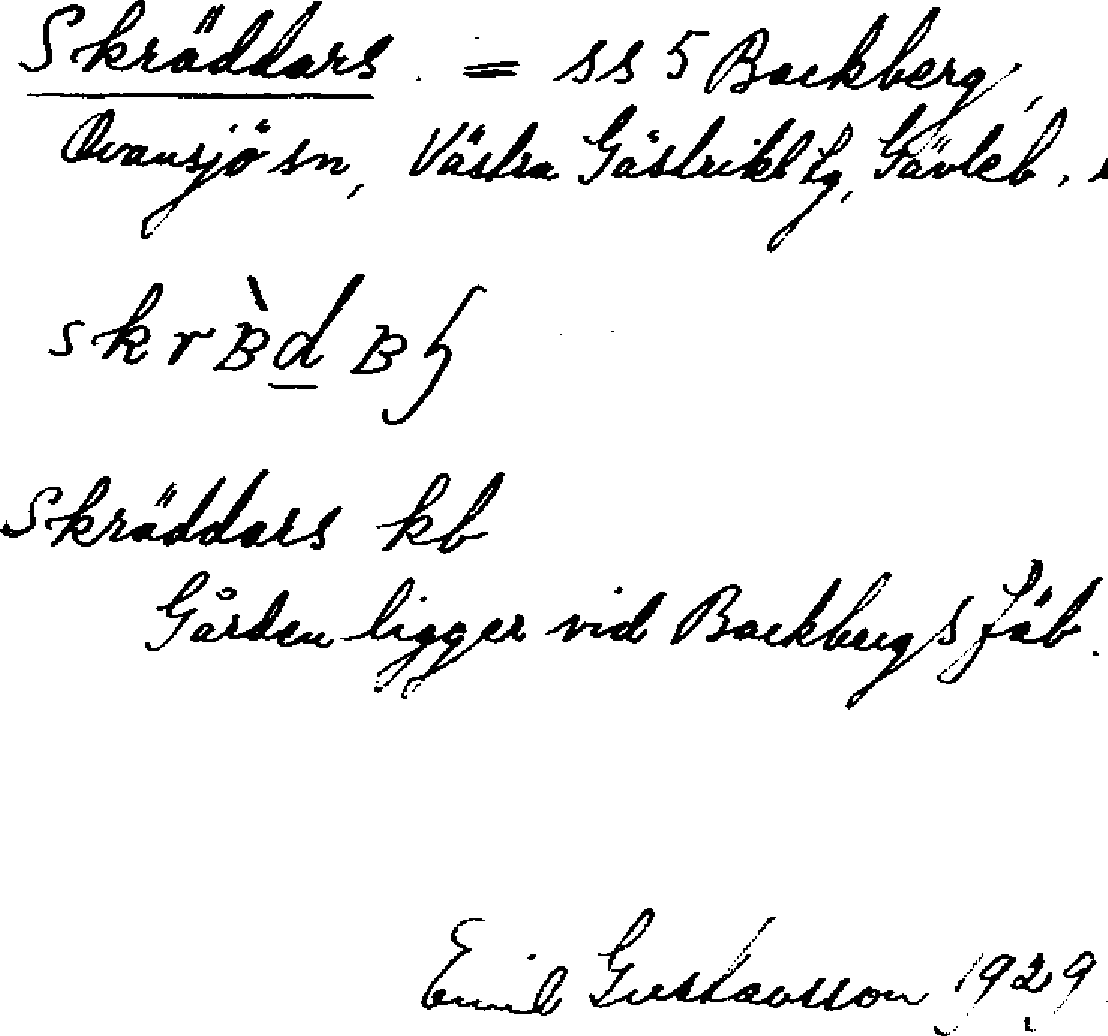 Skräddars. = ss 5 Backberg,
Ovansjö sn, Västra Gästrikl tg, Gävleb.
Skräddars kb
Gården ligger vid Backbergs fäb.
Emil Gustavsson 1929